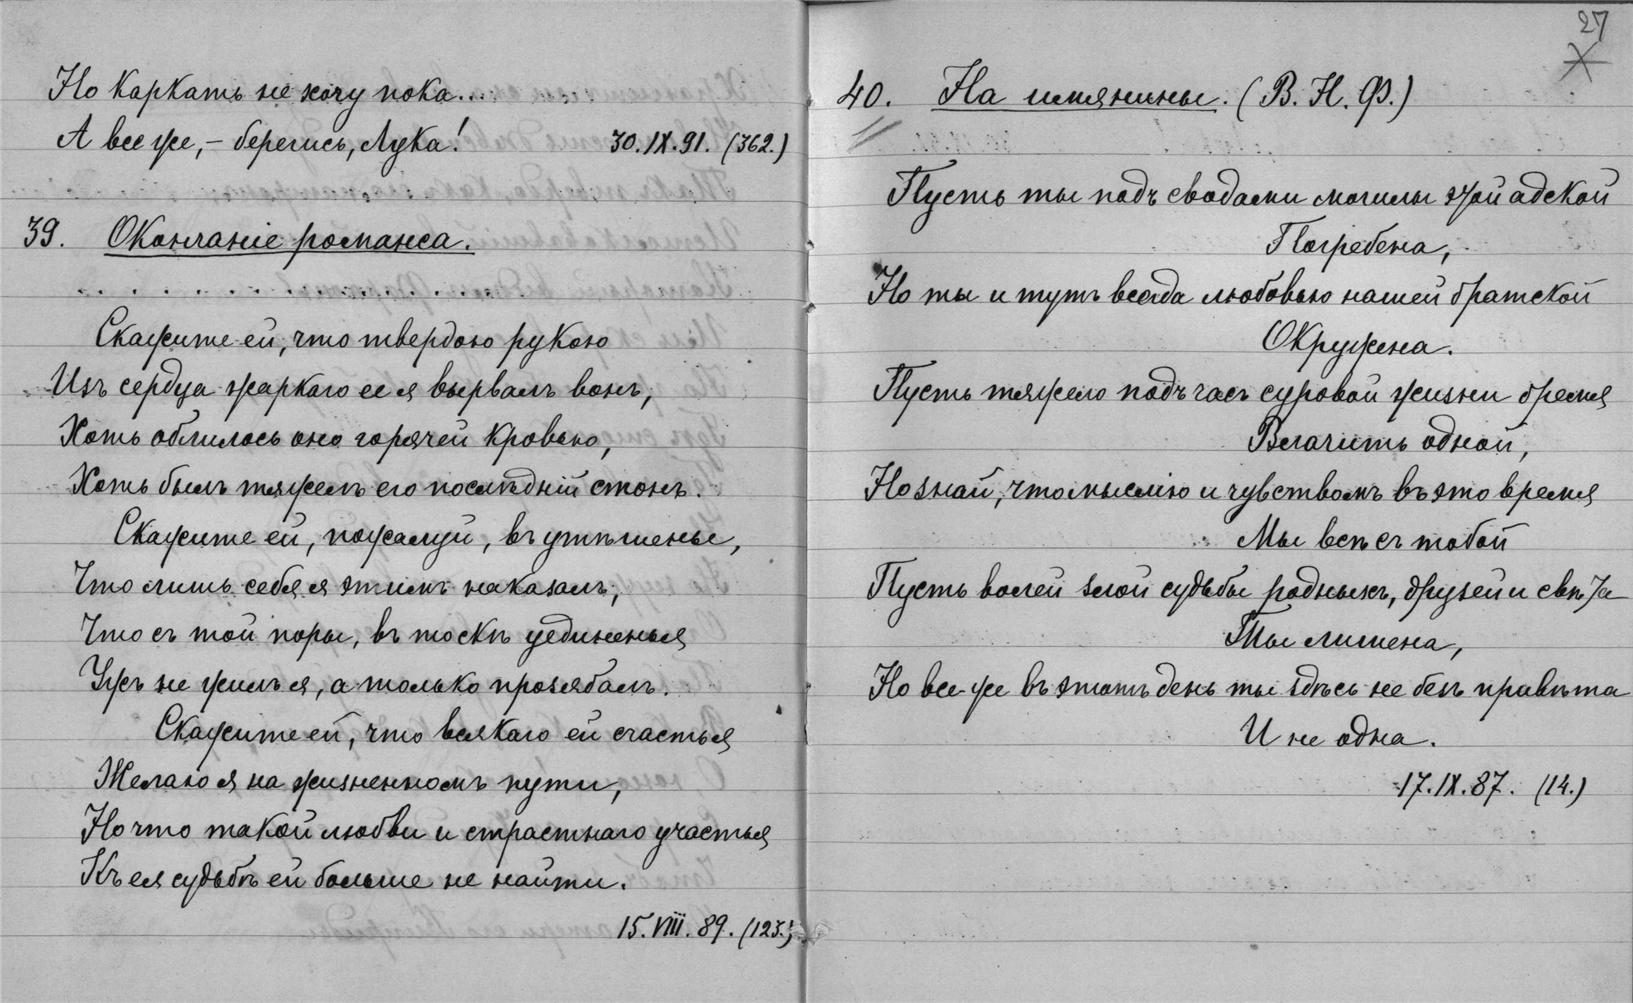 Но каркать не хочу пока...
А все же, – берегись, Лука! 30.IX.91. (362.)
39. Окончаніе романса.
. . . . . . . . . . . . . . . .
Скажите ей, что твердою рукою
Изъ сердца жаркаго ее я вырвалъ вонъ,
Хоть облилось оно горячей кровью,
Хоть былъ тяжелъ его послѣдній стонъ.
Скажите ей, пожалуй, въ утѣшенье,
Что лишь себя я этимъ наказалъ,
Что съ той поры, въ тоскѣ уединенья
Ужъ не жилъ я, а только прозябалъ.
Скажите ей, что всякаго ей счастья
Желаю я на жизненномъ пути,
Но что такой любви и страстнаго участья
Къ ея судьбѣ ей больше не найти.
15.VIII.89. (123.)
27
40. На имянины. (В. Н. Ф.)
Пусть ты подъ сводами могилы этой адской
Погребена,
Но ты и тутъ всегда любовью нашей братской
Окружена.
Пусть тяжело подъ часъ суровой жизни бремя
Влачить одной,
Но знай, что мыслію и чувствомъ въ это время
Мы всѣ съ тобой
Пусть волей злой судьбы родныхъ, друзей и свѣта
Ты лишена,
Но все-же въ этотъ день ты здѣсь не безъ привѣта
И не одна.
17.IX.87. (14.)